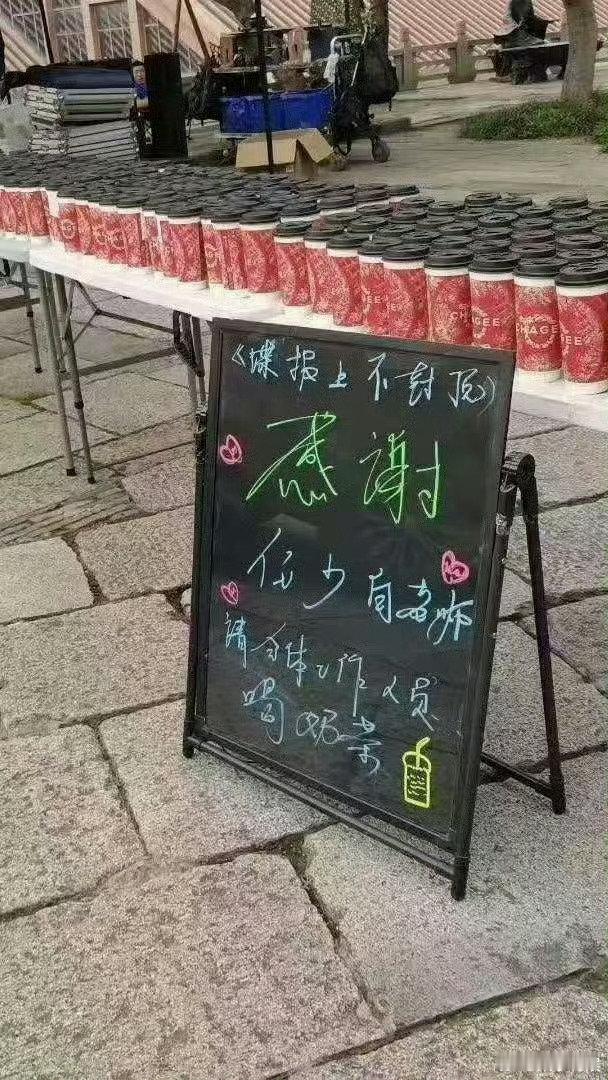 CHAGEE
CHAGEE
《谍报上不封顶》
感谢
任少白老师
請全体工作人员
喝奶茶